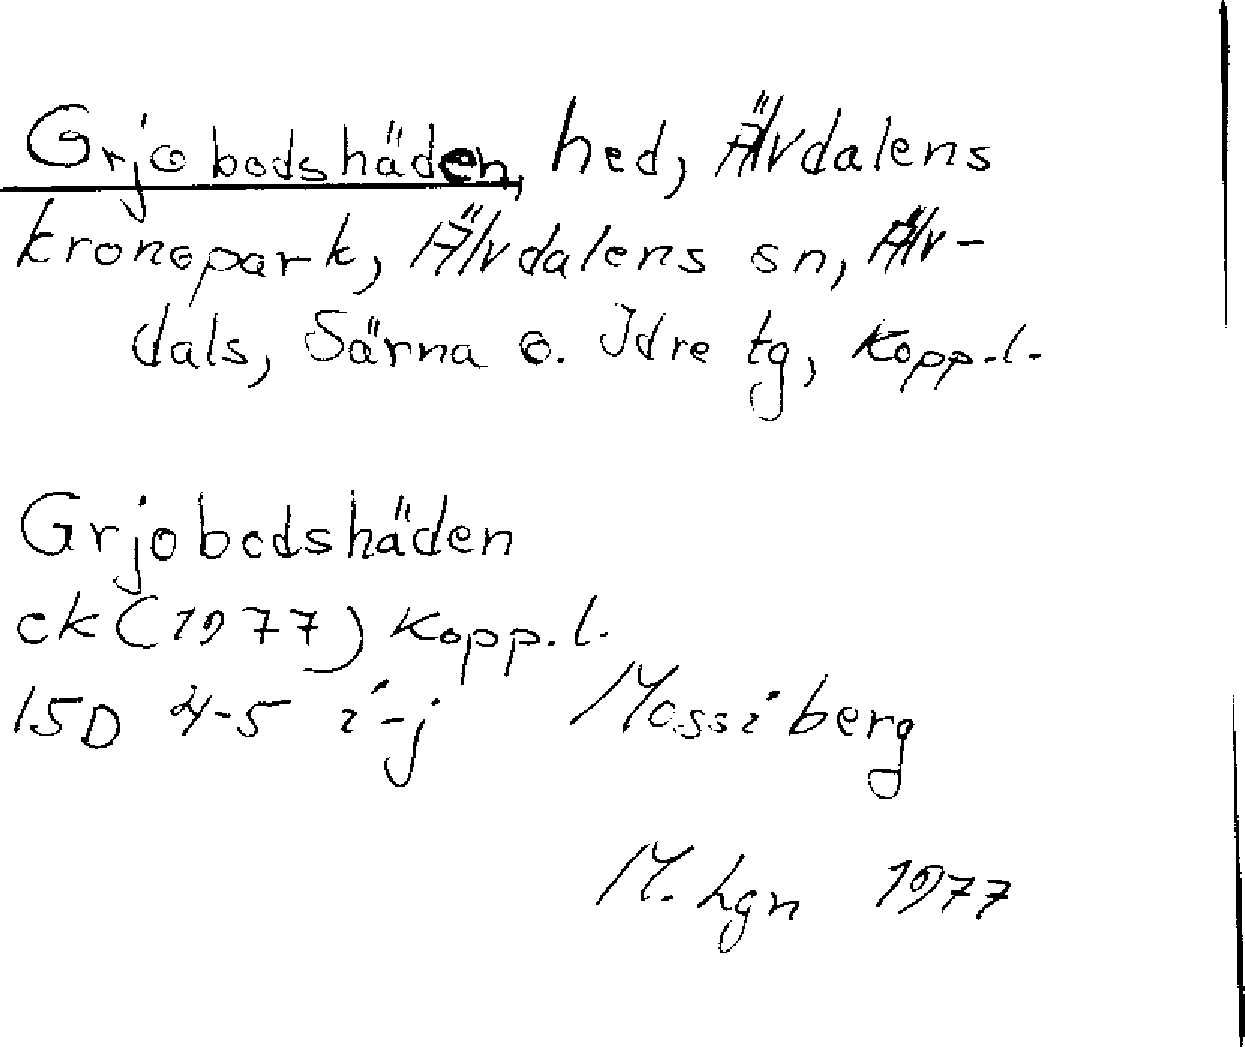 Grjobodshäden, hed, Älvdalens
kronopark, Älvdalens sn, Älv-
dals, Särna o. Idre tg, Kopp.l.
Grjobodshäden
ek (1977) Kopp.l.
15D 4-5 i-j Mossiberg
M. Lgn 1977